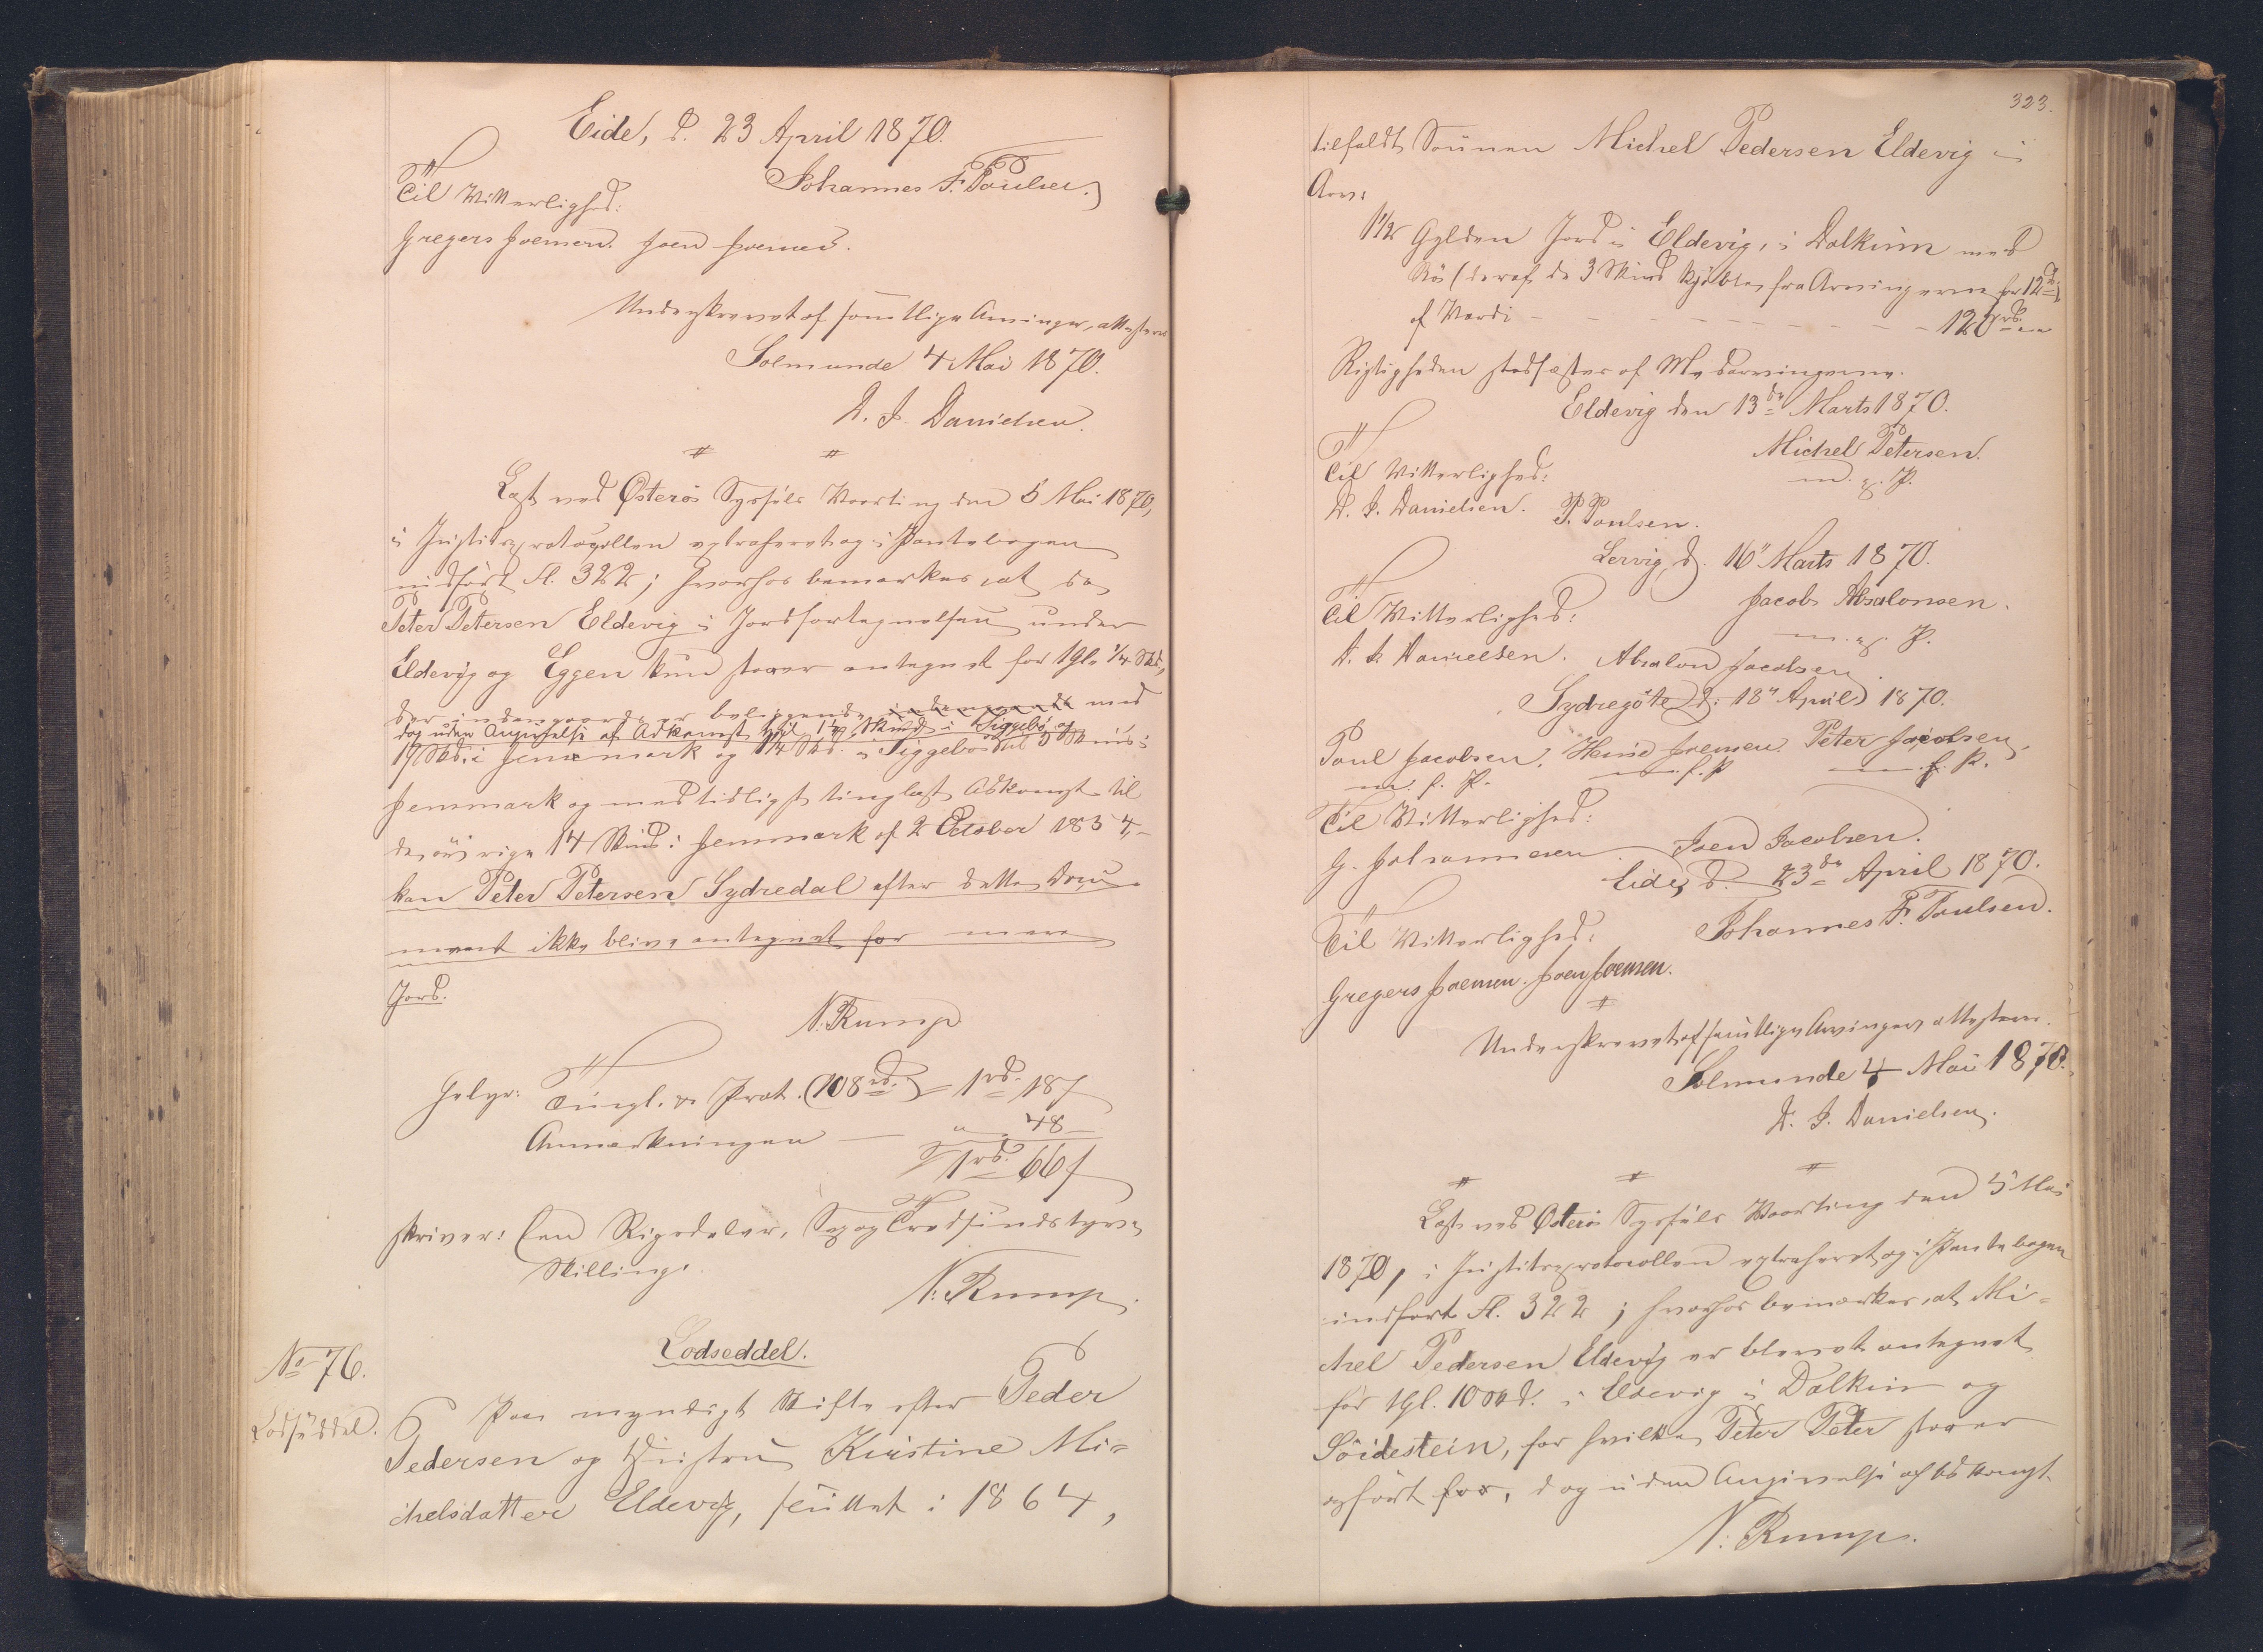 Eide, d. 23 April 1870.
Johannes F. Poulsen.
Til Vitterlighed:
Gregers Joensen. Joen Joensen.
Underskrevet af samtlige Arvinger, attesterer
Solmunde 4 Mai 1870.
D. J. Danielsen.
Læst ved Østerøs Syssels Vaarting den 5 Mai 1870,
i Justitsprotocollen extraheret og i Pantebogen
indført fl. 322; hvorhos bemærkes, at da
Peter Petersen Eldevig i Jordfortegnelsen under
Eldevig og Eggen kun staaer antegnet for 1 Gl. 1/4 Skd.,
der indengaards er beliggende med
dog uden Angivelse af Adkomst til 1 1/4 Skind i Siggebö og
17 Skd. i Jennemark og 1 1/4 Skd. i Siggebö til 3 Skind i
Jennmark og med tidligst tinglæst Adkomst til
de øvrige 14 Skind i Jennmark af 2 October 1854,
kan Peter Petersen Sydredal efter dette Docu-
ment ikke blive antegnet for mere
Jord.
N. Rump
Gebyr: Tingl. & Prot. (108 rd.) – 1 rd. 18 ſ
Anmærkningen — " 48 –
1 rd. 66 ſ
skriver: Een Rigsdaler, Sex og Tredsindstyve
Skilling.
N. Rump.
No 76.
Lodseddel.
Lodseddel.
Paa myndigt Skifte efter Peder
Pedersen og Hustru Kirstine Mi-
chelsdatter Eldevig, sluttet i 1864,
323.
tilfaldt Sönnen Michel Pedersen Eldevig i
Arv:
1 1/2 Gylden Jord i Eldevig, i Dalkinn med
Kö (deraf de 3 Skind kjöbtes fra Arvingerne for 12 rd.)
af Værdi - - - - - - - - - 120 rd. "
Rigtigheden stadfæstes af Medarvingerne.
Eldevig den 13de Marts 1870.
Michel Petersen.
m. f. P.
Til Vitterlighed:
D. J. Danielsen. P. Poulsen.
Lervig, d. 16" Marts 1870.
Jacob Absalonsen.
m. f. P.
Til Vitterlighed:
D. J. Danielsen. Absalon Jacobsen.
Sydregöte d: 18" April 1870.
Poul Jacobsen. Joensen. Peter Jacobsen,
m. f. P. m. f. P. m. f. P.
Til Vitterlighed:
G. Johannesen. Joen Jacobsen.
Eide, d. 23de April 1870.
Johannes F. Poulsen.
Til Vitterlighed:
Gregers Joensen. Joen Joensen.
Underskrevet af samtlige Arvinger, attesterer.
Solmunde 4 Mai 1870.
D. J. Danielsen.
Læst ved Østerøs Syssels Vaarting den 5 Mai
1870, i Justitsprotocollen extraheret og i Pantebogen
indført fl. 322; hvorhos bemærkes, at Mi-
chel Pedersen Eldevig er blevet antegnet
for 1 Gl. 10 Skd. i Eldevig i Dalkin og
Söidestein, for hvilke Peter Peter staaer
opført for, dog uden Angivelse af Adkomst.
N. Rump.